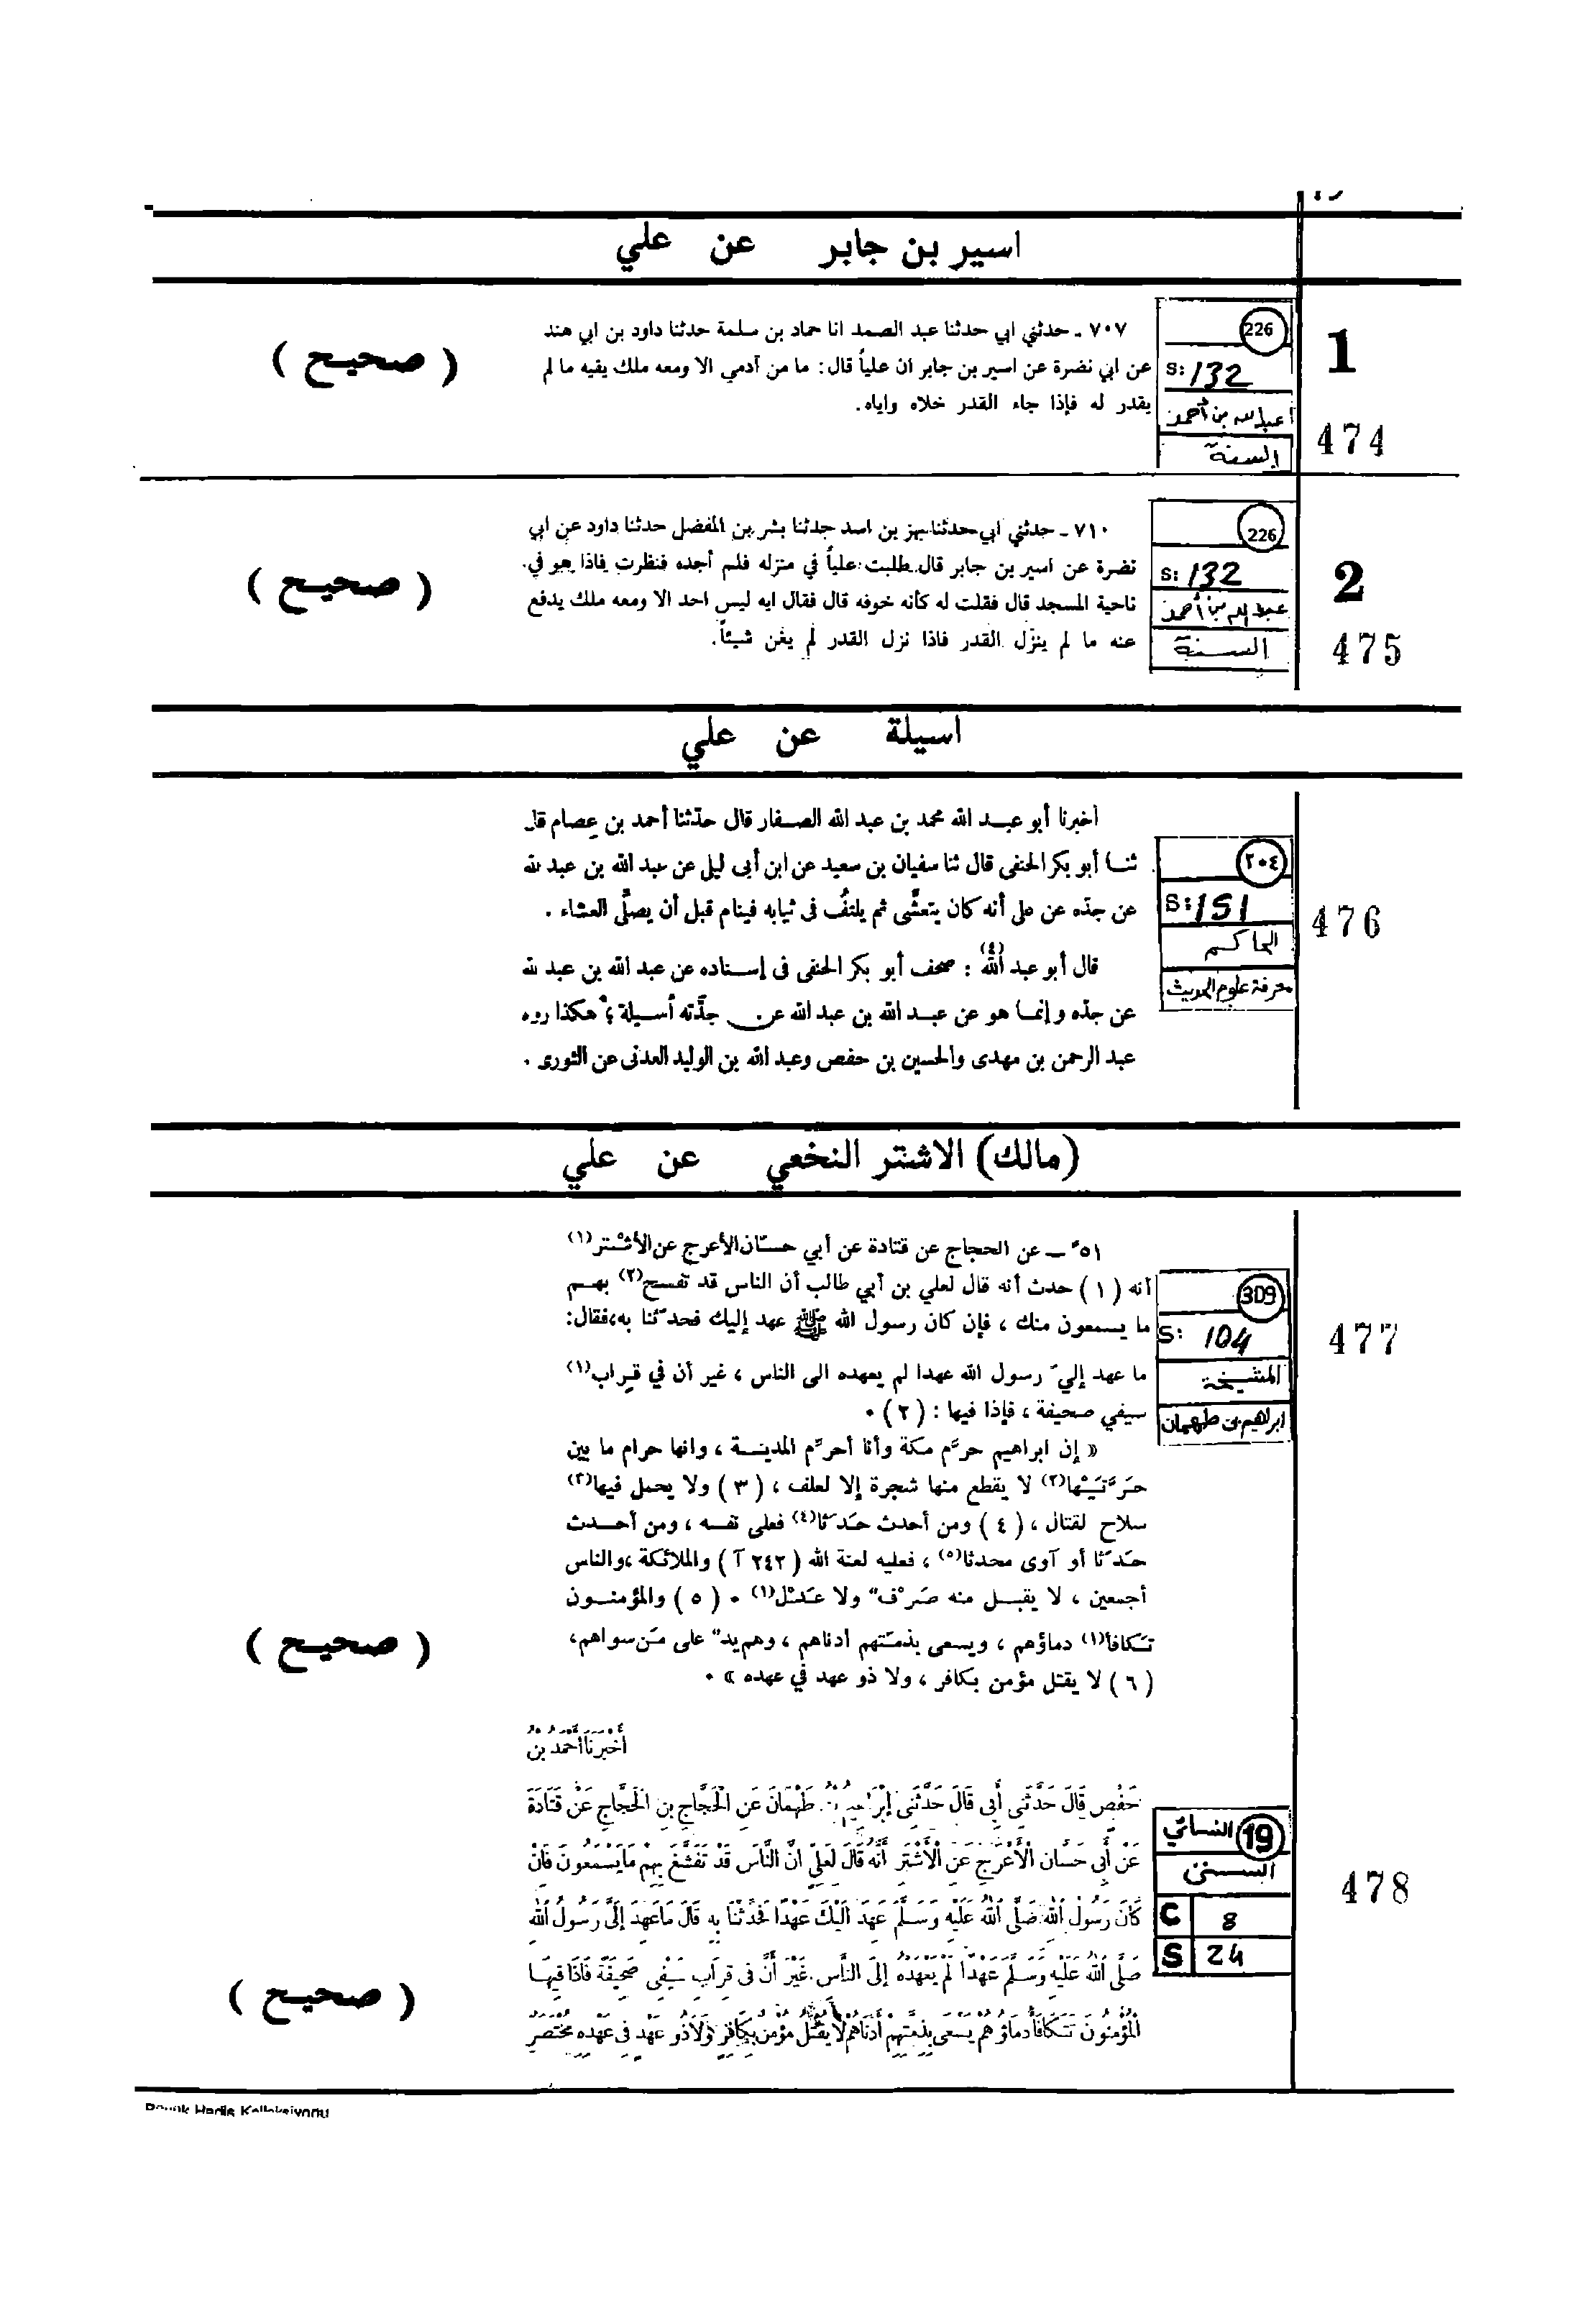 اسير بن جابر عن علي
226
S: 132
عبدالله بن أحمد
السنة
1
474
٧٠٧ ـ حدثني ابي حدثنا عبد الصمد انا حماد بن سلمة حدثنا داود بن ابي هند
عن ابي نضرة عن اسير بن جابر ان علياً قال: ما من آدمي الا ومعه ملك يقيه ما لم
يقدر له فإذا جاء القدر خلاه واياه.
( صحيح )
226
S: 132
عبدالله بن أحمد
السنة
2
475
٧١٠ ـ حدثني ابي حدثنا بهز بن اسد حدثنا بشر بن المفضل حدثنا داود عن ابي
نضرة عن اسير بن جابر قال طلبت علياً في منزله فلم أجده فنظرت فاذا هو في
ناحية المسجد قال فقلت له كأنه خوفه قال فقال ايه ليس احد الا ومعه ملك يدفع
عنه ما لم ينزل القدر فاذا نزل القدر لم يغن شيئاً.
( صحيح )
اسيلة عن علي
٢٠٤
S: 151
الحاكم
معرفة علوم الحديث
476
اخبرنا أبو عبد الله محمد بن عبد الله الصفار قال حدّثنا أحمد بن عصام قال
ثنا أبو بكر الحنفى قال ثنا سفيان بن سعيد عن ابن أبى ليلى عن عبد الله بن عبد لله
عن جدّه عن على أنه كان يتعشّى ثم يلتفّ فى ثيابه فينام قبل أن يصلّى العشاء .
قال أبو عبد الله : صحف أبو بكر الحنفى فى إسناده عن عبد الله بن عبد لله
عن جدّه وإنما هو عن عبد الله بن عبد الله عن جدّته أسيلة ؛ هكذا روه
عبد الرحمن بن مهدى والحسين بن حفص وعبد الله بن الوليد العدنى عن الثورى .
(مالك) الاشتر النخعي عن علي
309
S: 104
المشيخة
ابراهيم بن طهمان
477
٥١ ـ عن الحجاج عن قتادة عن أبي حسّان الأعرج عن الأشتر(١)
أنه ( ١ ) حدث أنه قال لعلي بن أبي طالب أن الناس قد تفسح(٢) بهم
ما يسمعون منك ، فإن كان رسول الله ﷺ عهد إليك فحدّثنا به، فقال:
ما عهد إليّ رسول الله عهدا لم يعهده الى الناس ، غير أن في قراب(١)
سيفي صحيفة ، فإذا فيها : ( ٢ ) .
« إن ابراهيم حرّم مكة وأنا أحرّم المدينة ، وانها حرام ما بين
حَرَّتَيْها(٢) لا يقطع منها شجرة إلا لعلف ، ( ٣ ) ولا يحمل فيها(٣)
سلاح لقتال ، ( ٤ ) ومن أحدث حَدَثا(٤) فعلى نفسه ، ومن أحدث
حَدَثا أو آوى محدثا(٥) ، فعليه لعنة الله ( ٢٤٢ آ ) والملائكة ، والناس
أجمعين ، لا يقبل منه صَرْف ولا عَدْل(١) . ( ٥ ) والمؤمنون
تتكافأ(١) دماؤهم ، ويسعى بذمّتهم أدناهم ، وهم يد على مَن سواهم،
( ٦ ) لا يقتل مؤمن بكافر ، ولا ذو عهد في عهده » .
( صحيح )
أَخْبَرَنَا أَحْمَدُ بْنُ
حَفْصٍ قَالَ حَدَّثَنِى أَبِى قَالَ حَدَّثَنِى إِبْرَاهِيمُ بْنُ طَهْمَانَ عَنِ الْحَجَّاجِ بْنِ الْحَجَّاجِ عَنْ قَتَادَةَ
عَنْ أَبِى حَسَّانَ الْأَعْرَجِ عَنِ الْأَشْتَرِ أَنَّهُ قَالَ لِعَلِىٍّ انَّ النَّاسَ قَدْ تَفَشَّغَ بِهِمْ مَا يَسْمَعُونَ فَانْ
كَانَ رَسُولُ اللّٰهِ صَلَّى اللّٰهُ عَلَيْهِ وَسَلَّمَ عَهِدَ الَيْكَ عَهْدًا فَحَدِّثْنَا بِهِ قَالَ مَا عَهِدَ إِلَىَّ رَسُولُ اللّٰهِ
صَلَّى اللّٰهُ عَلَيْهِ وَسَلَّمَ عَهْدًا لَمْ يَعْهَدْهُ إِلَى النَّاسِ غَيْرَ أَنَّ فِى قِرَابِ سَيْفِى صَحِيفَةً فَاذَا فِيهَا
الْمُؤْمِنُونَ تَتَكَافَأُ دِمَاؤُهُمْ يَسْعَى بِذِمَّتِهِمْ أَدْنَاهُمْ لَا يُقْتَلُ مُؤْمِنٌ بِكَافِرٍ وَلَا ذُو عَهْدٍ فِى عَهْدِهِ مُخْتَصَرٌ
19
النسائي
السنن
C 8
S 24
478
( صحيح )